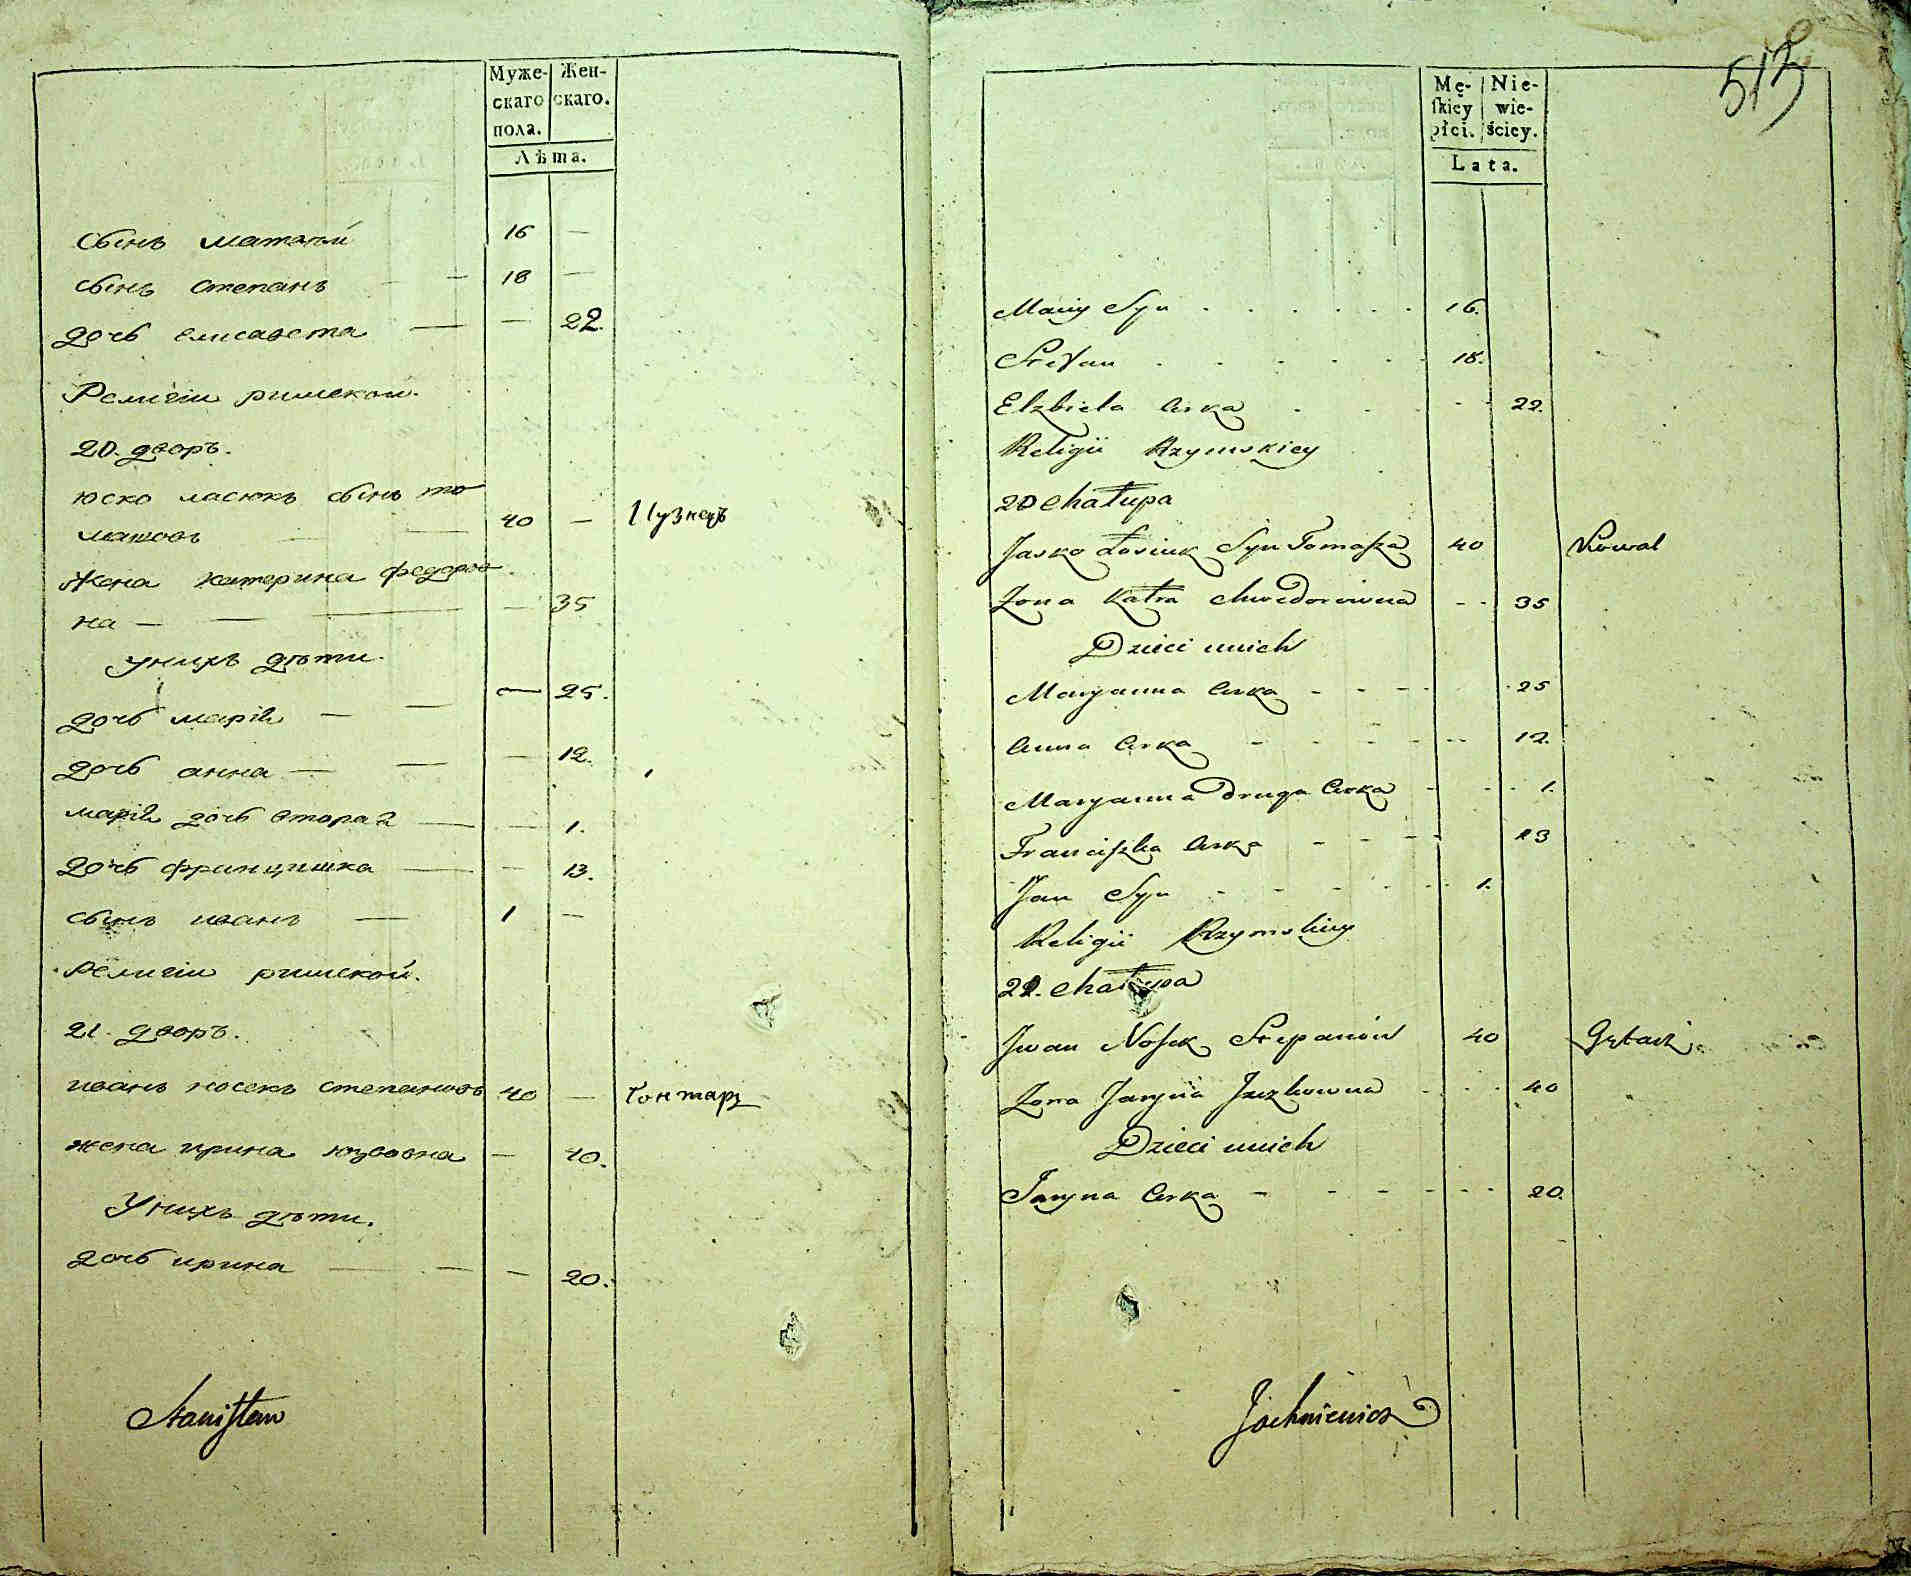 Муже-
скаго
пола.
Жен-
скаго.
Лѣта.
Сынъ матѳей 16 —
сынъ степанъ — 18 —
дочь елисавета — — 22.
Религіи римской.
20. дворъ.
юско ласюкъ сынъ то
машовъ 40 — Кузнецъ
жена катерина федоров
на — — — 35
У нихъ дѣти.
дочь марія — — — 25.
дочь анна — — — 12.
марія дочь вторая — — 1.
дочь францишка — — 13.
сынъ иванъ — 1 —
Религіи римской.
21. дворъ.
иванъ носекъ степановъ 40 — Гонтарь
жена ирина юзвовна — 40.
У нихъ дѣти.
дочь ирина — — — 20.
Stanisław
513
Mę-
skiey
płci.
Nie-
wie-
ściey.
Lata.
Maciey Syn . . . . . . 16.
Stefan . . . . . . 18.
Elzbieta Crka . . . - - 22.
Religii Rzymskiey
20 Chałupa
Jasko Łosiuk Syn Tomasza 40 Kowal
Zona Katra Chwedorowna - - 35
Dzieci u nich
Maryanna Crka - - - - 25
Anna Crka - - - - - - 12.
Maryanna Druga Crka - - - 1.
Franciszka Crka - - - - 13
Jan Syn - - - - - - 1.
Religii Rzymskiey
21. Chałupa
Jwan Nosek Stepanow 40
Zona Jaryna Juzkowna - - - 40
Dzieci u nich
Jaryna Crka - - - - - - 20.
Jachniewicz